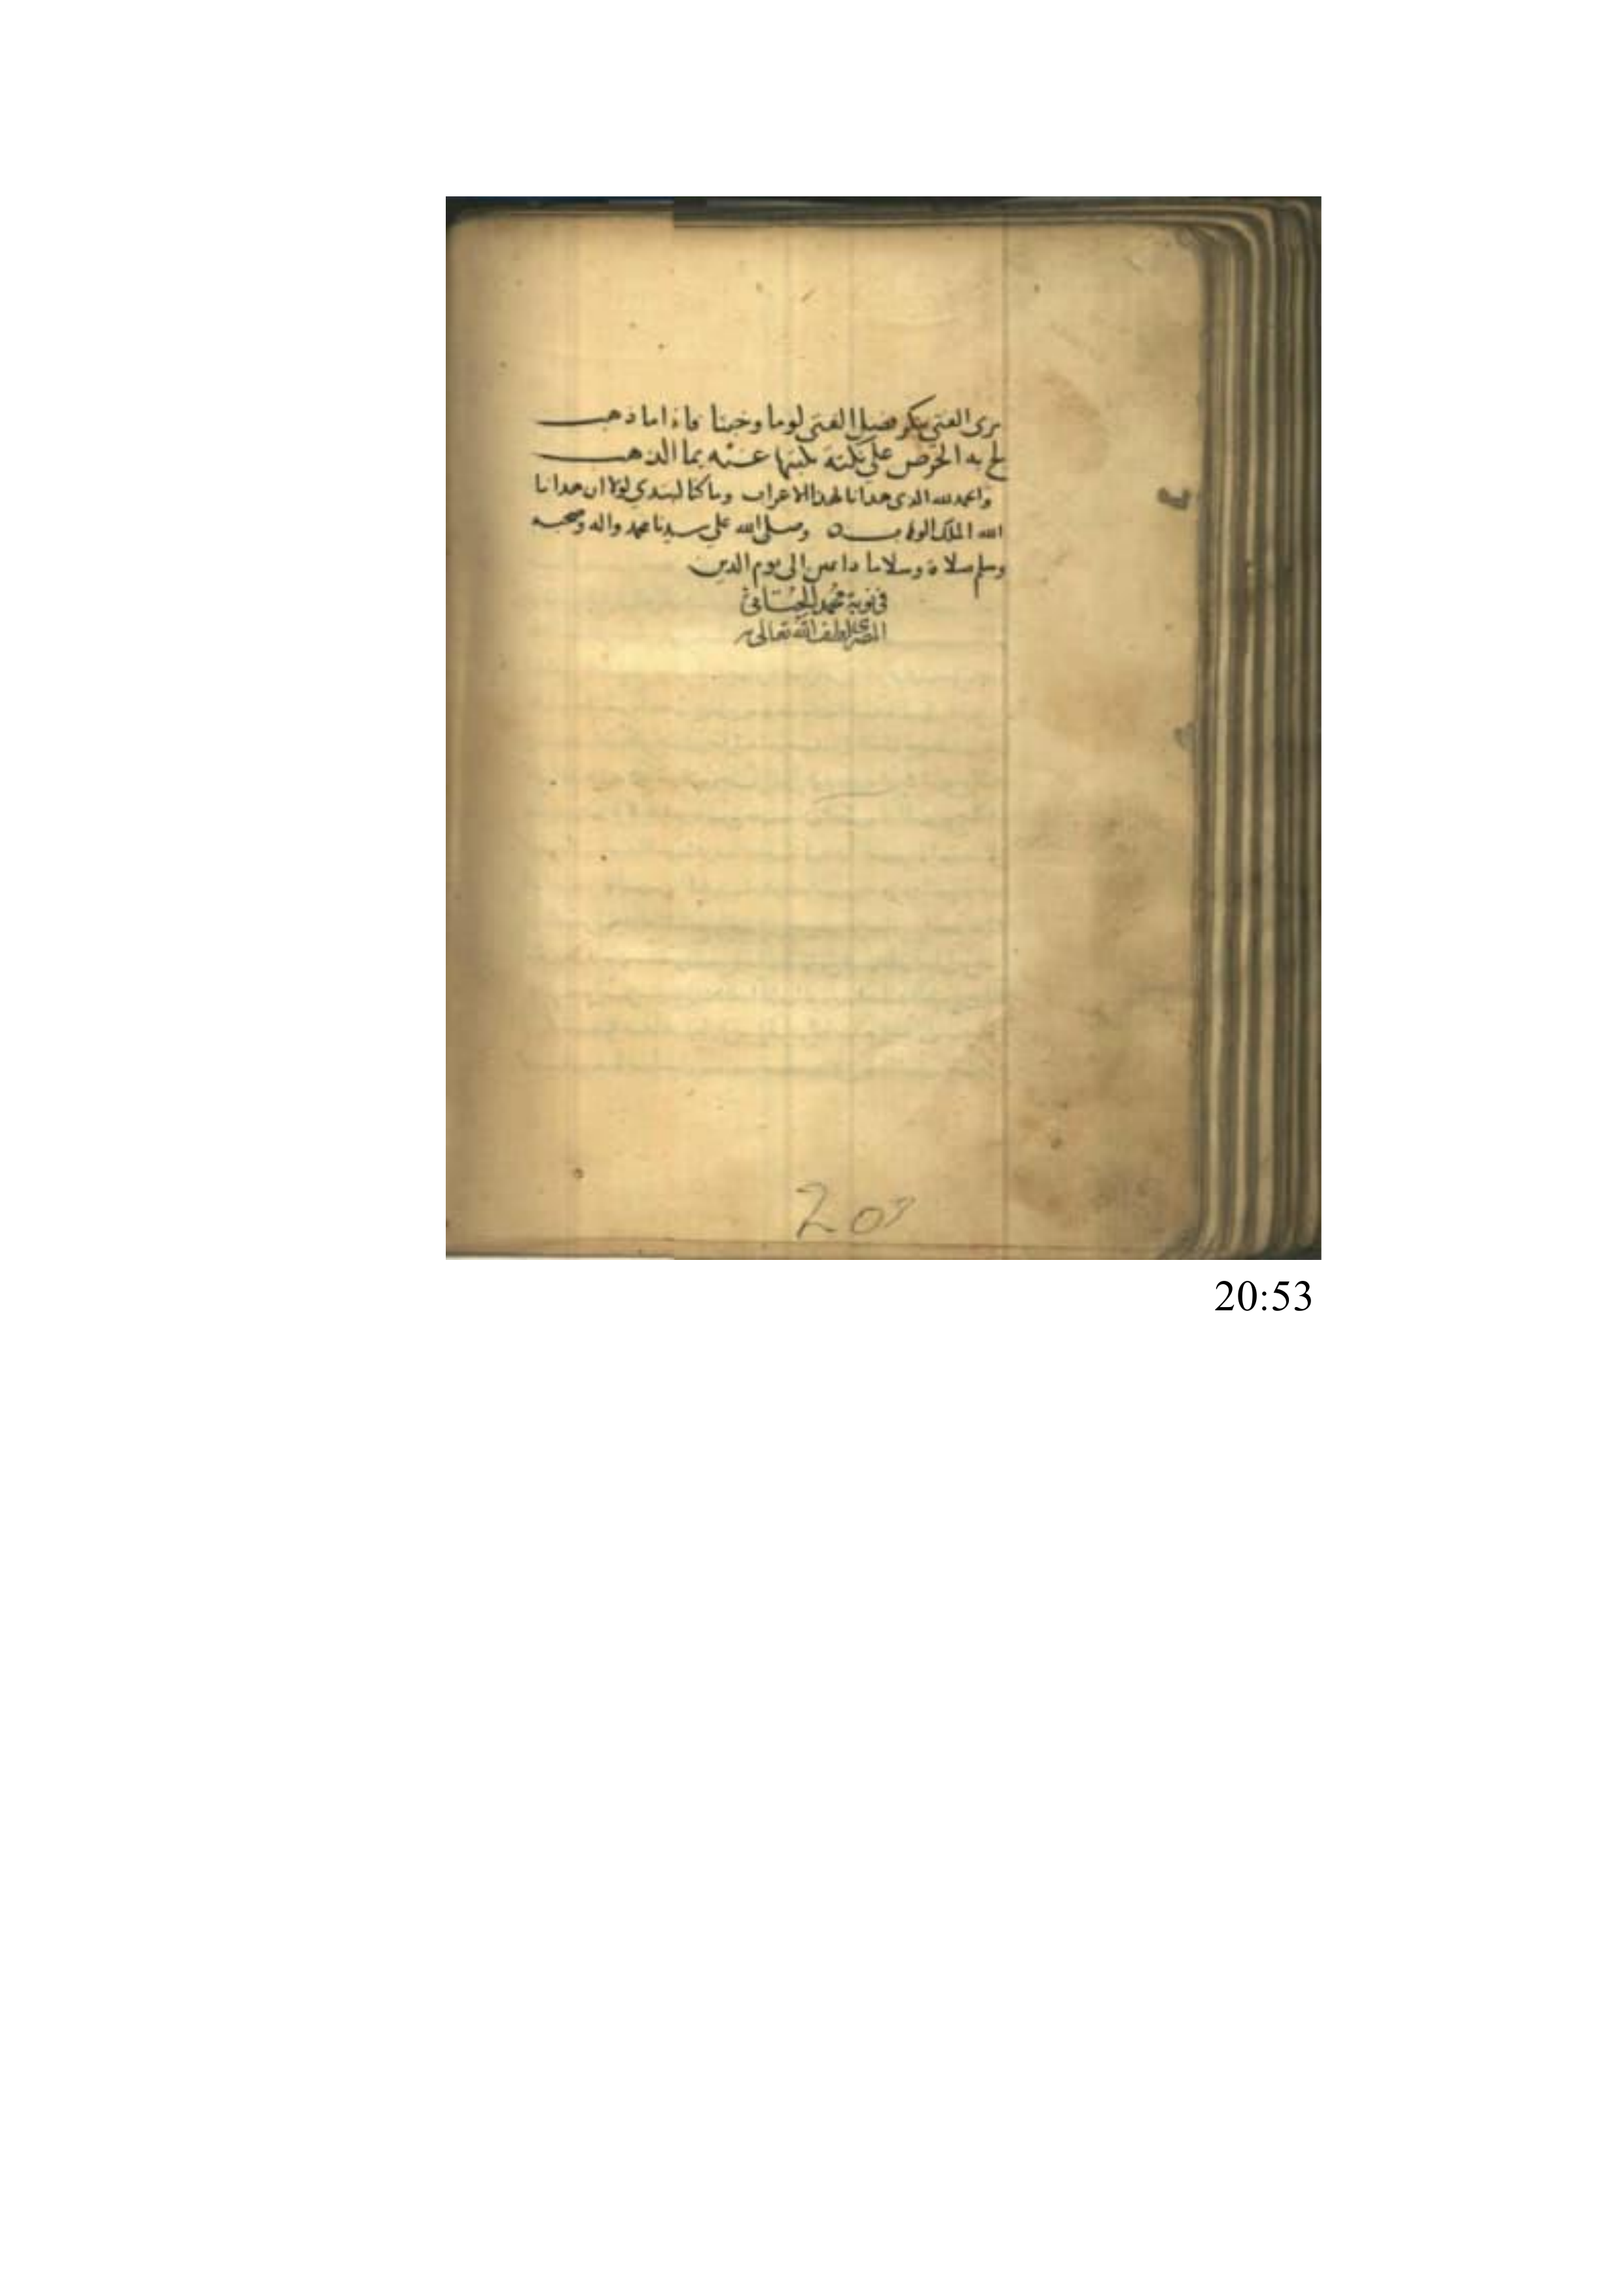 ترى الفتى ينكر فضل الفتى لوما وخبثا فاذا ما ذهب
لج به الحرص على نكتة يكتبها عنه بما الذهب
والحمد لله الذي هدانا لهذا الاعراب وما كنا لنهتدي لولا ان هدانا
الله الملك الوهاب وصلى الله على سيدنا محمد واله وصحبه
وسلم صلاة وسلاما دايمين الى يوم الدين
في نوبة محمد
المصري لطف الله تعالى
203
20:53